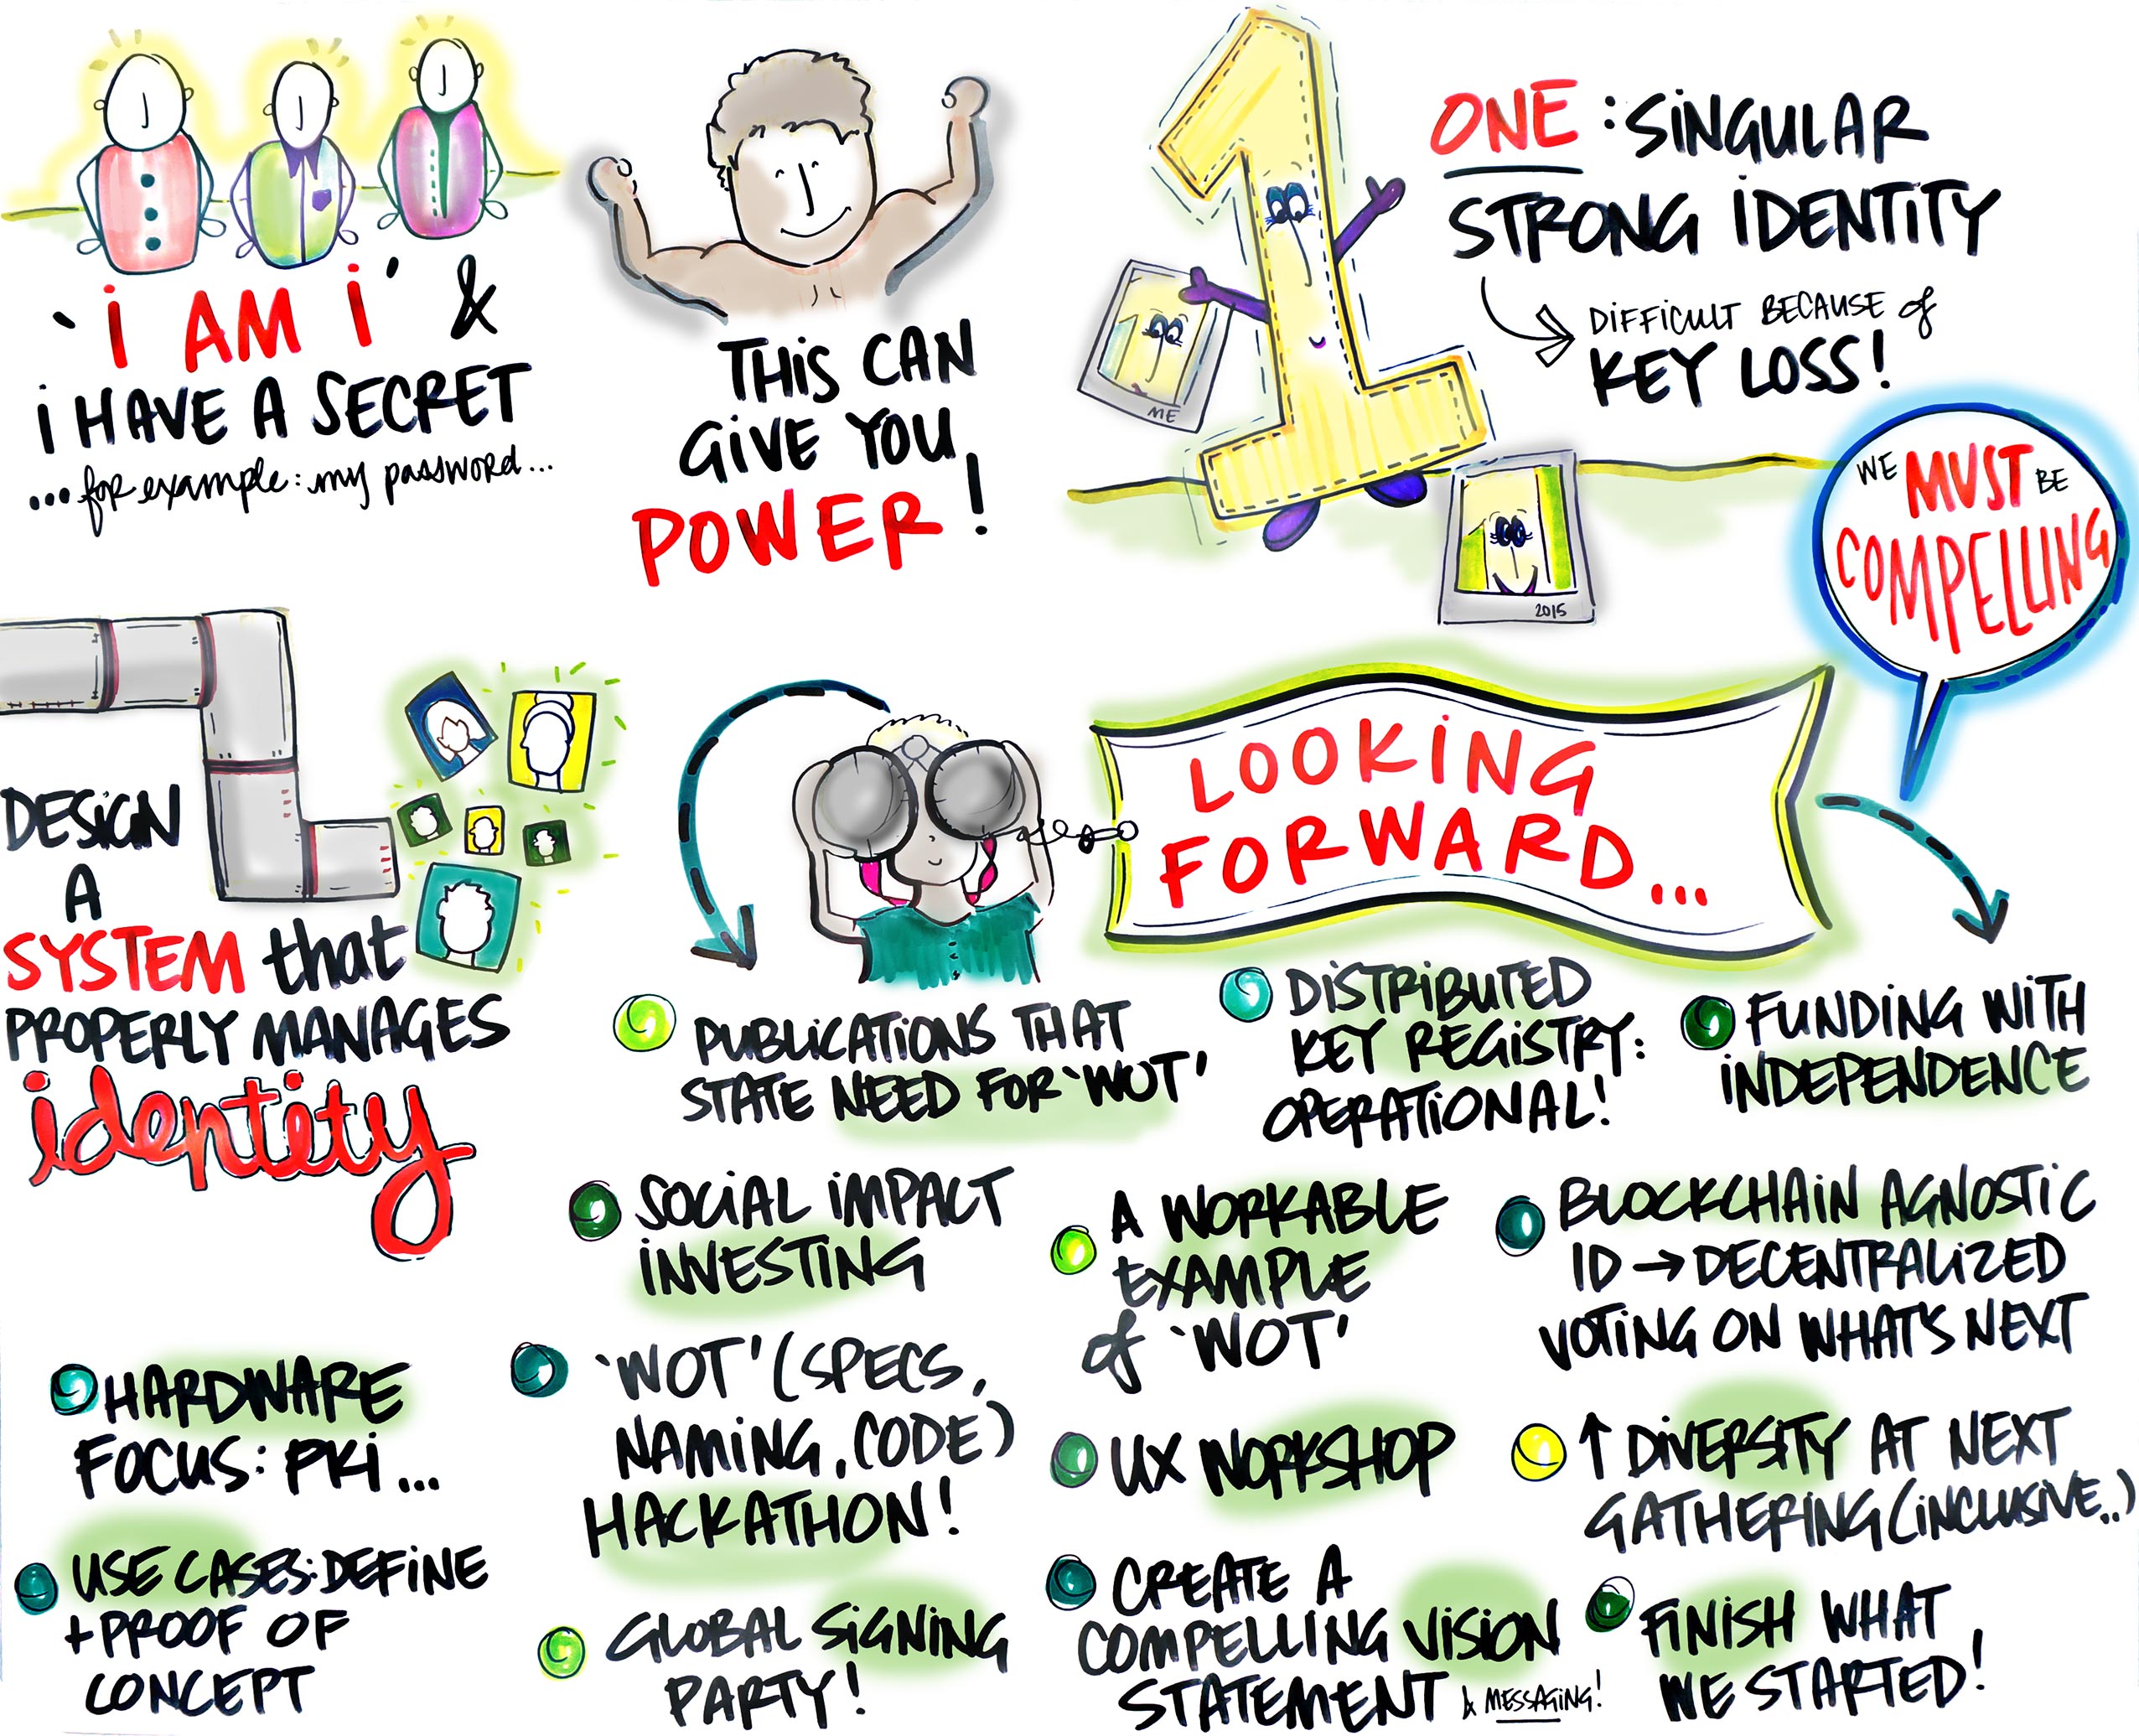 'i AM i' &
i HAVE A SECRET
...for example: my password...
THiS CAN
GiVE YOU
POWER!
ONE: SiNGULAR
STRONG IDENTITY
DiFFiCULT BECAUSE of
KEY LOSS!
ME
2015
WE MUST BE
COMPELLING
DESiGN
A
SYSTEM that
PROPERLY MANAGES
identity
LOOKiNG
FORWARD...
PUBLiCATiONS THAT
STATE NEED FOR 'WOT'
DiSTRiBUTED
KEY REGiSTRY:
OPERATiONAL!
FUNDiNG WiTH
iNDEPENDENCE
SOCiAL iMPACT
iNVESTiNG
A WORKABLE
EXAMPLE
of 'WOT'
BLOCKCHAiN AGNOSTiC
ID → DECENTRALiZED
VOTiNG ON WHAT'S NEXT
HARDWARE
FOCUS: PKi...
'WOT' (SPECS,
NAMiNG, CODE)
HACKATHON!
UX WORKSHOP
↑ DiVERSiTY AT NEXT
GATHERiNG (iNCLUSiVE..)
USE CASES: DEFiNE
+ PROOF OF
CONCEPT
GLOBAL SiGNiNG
PARTY!
CREATE A
COMPELLiNG ViSiON
STATEMENT & MESSAGiNG!
FiNiSH WHAT
WE STARTED!